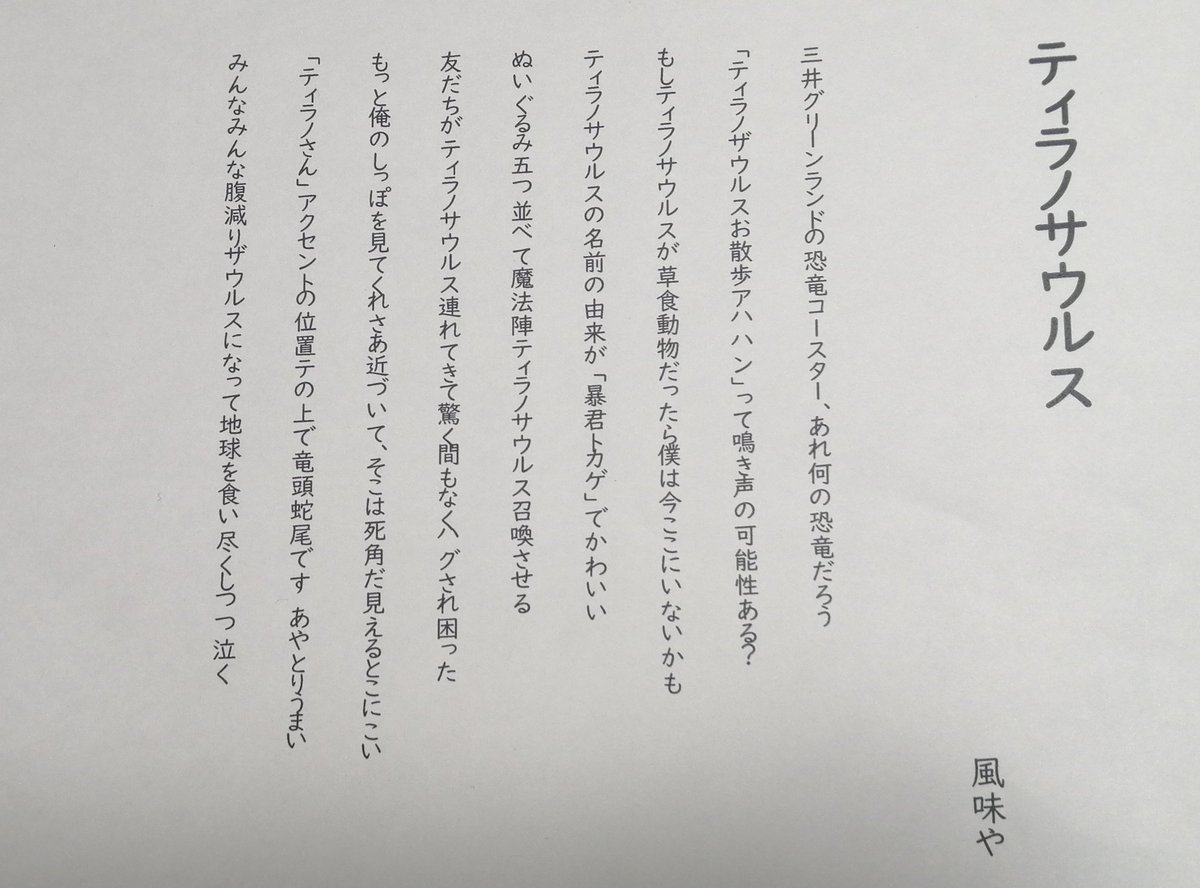 ティラノサウルス
風味や
三井グリーンランドの恐竜コースター、あれ何の恐竜だろう
「ティラノザウルスお散歩アハハン」って鳴き声の可能性ある？
もしティラノサウルスが草食動物だったら僕は今ここにいないかも
ティラノサウルスの名前の由来が「暴君トカゲ」でかわいい
ぬいぐるみ五つ並べて魔法陣ティラノサウルス召喚させる
友だちがティラノサウルス連れてきて驚く間もなくハグされ困った
もっと俺のしっぽを見てくれさあ近づいて、そこは死角だ見えるとこにこい
「ティラノさん」アクセントの位置テの上で竜頭蛇尾です　あやとりうまい
みんなみんな腹減りザウルスになって地球を食い尽くしつつ泣く